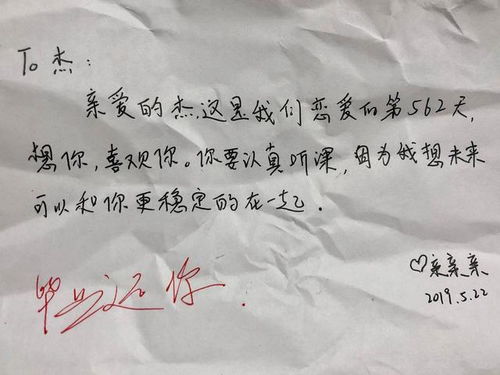 To 杰：
亲爱的杰,这是我们恋爱的第562天,
想你,喜欢你。你要认真听课,因为我想未来
可以和你更稳定的在一起.
♡亲亲亲
2019.5.22
毕业还你.